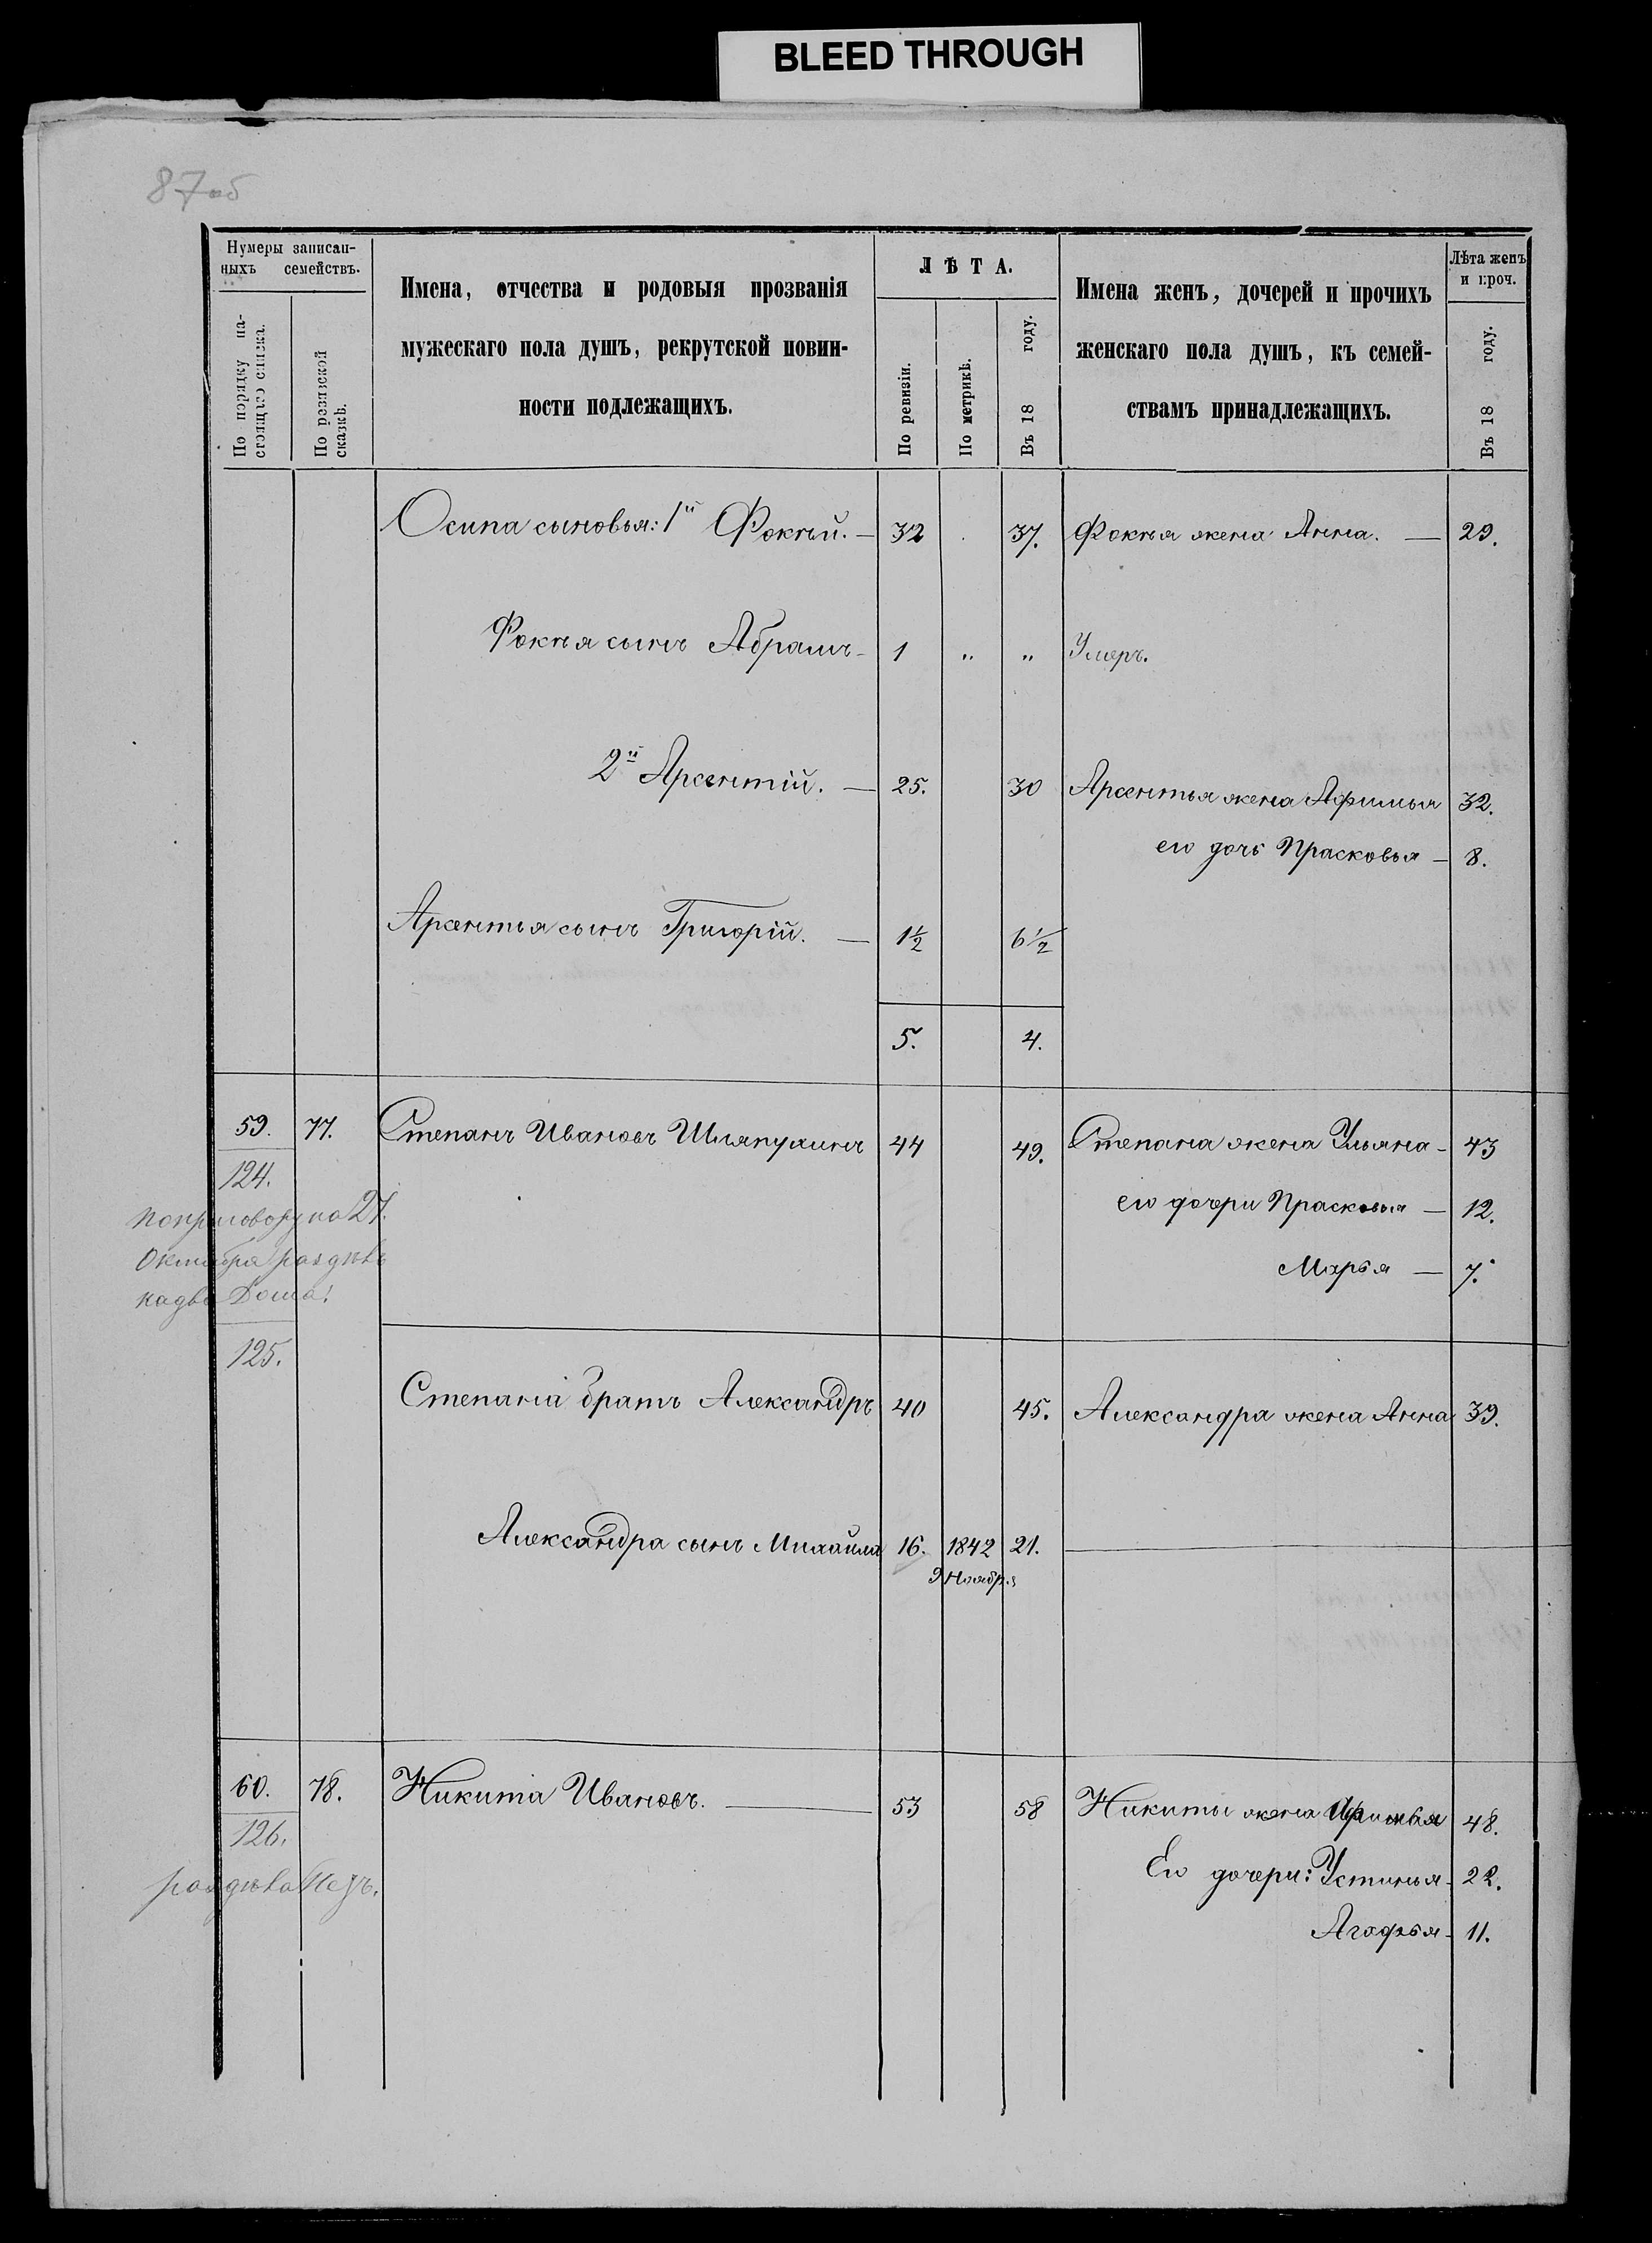 BLEED THROUGH
87 об
Нумеры записан-
ныхъ семействъ.
По порядку на-
стоящаго списка.
По ревизской
сказкѣ.
Имена, отчества и родовыя прозванія
мужескаго пола душъ, рекрутской повин-
ности подлежащихъ.
ЛѢТА.
По ревизіи.
По метрикѣ.
Въ 18 году.
Имена женъ, дочерей и прочихъ
женскаго пола душъ, къ семей-
ствамъ принадлежащихъ.
Лѣта женъ
и проч.
Въ 18 году.
Осипа сыновья: 1й Фокѣй. — 32 37. Фокѣя жена Анна. — 29.
Фокѣя сынъ Абрамъ - 1 " " Умеръ.
2й Арсентій. — 25. 30 Арсентья жена Афимья 32.
его дочь Прасковья — 8.
Арсентья сынъ Григорій. — 1½ 6½
5. 4.
59. 77. Степанъ Ивановъ Шляпухинъ 44 49. Степана жена Ульяна - 43
124.
его дочери Прасковья — 12.
по приговору на 27.
Октября раздѣлъ
на два Дома!
Марья — 7.
125.
Степана братъ Александръ 40 45. Александра жена Анна 39.
Александра сынъ Михайла 16. 1842 21.
9 Ноябр.
60. 78. Никита Ивановъ. — 53 58 Никиты жена Афимья 48.
126.
Его дочери: Устинья - 22.
Агафья - 11.